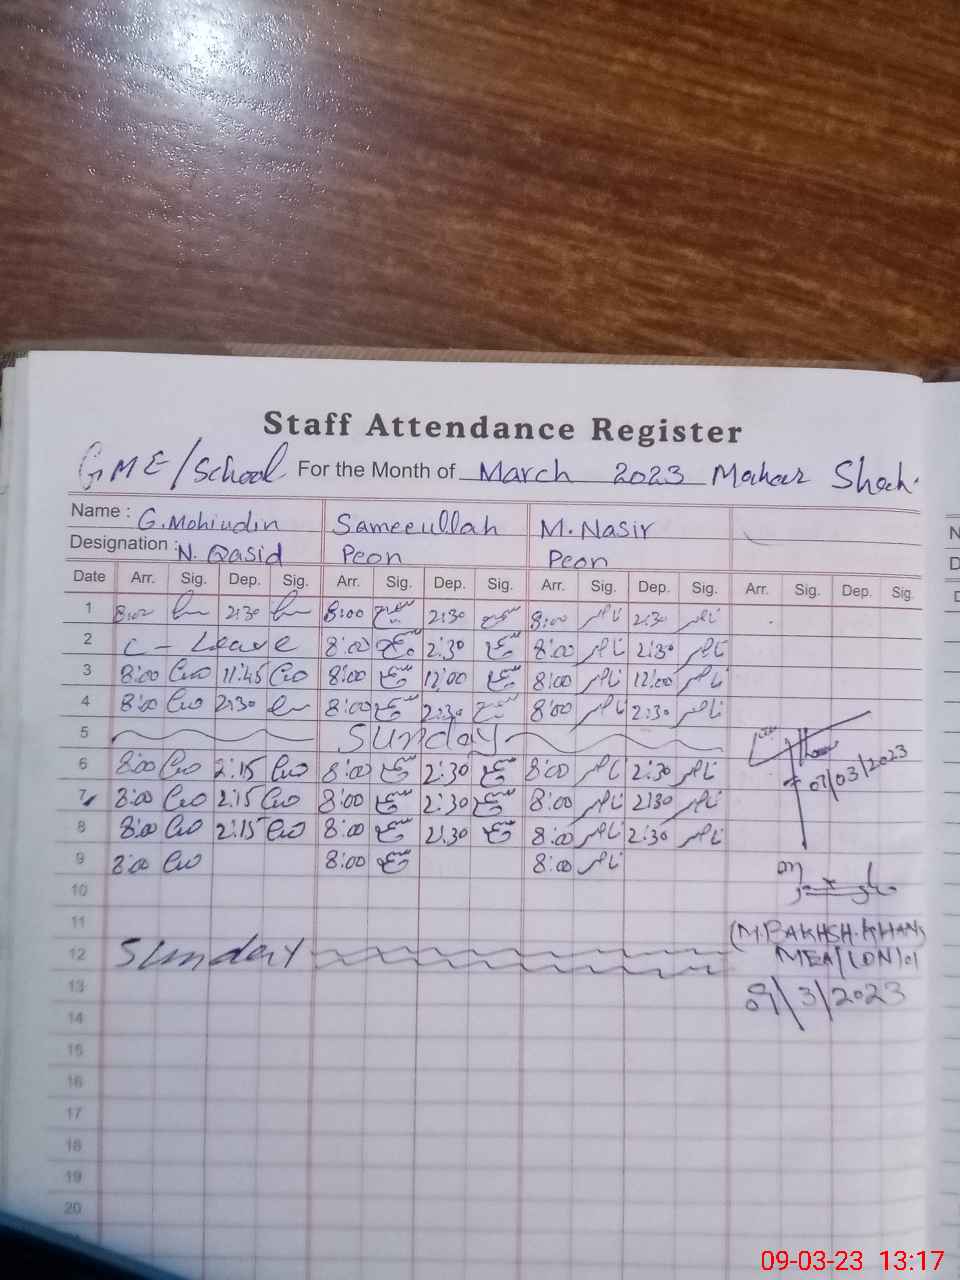 Staff Attendance Register
GME/School For the Month of March 2023 Mahar Shah.
Name : G. Mohiudin Sameeullah M. Nasir
Designation : N. Qasid Peon Peon
Date Arr. Sig. Dep. Sig. Arr. Sig. Dep. Sig. Arr. Sig. Dep. Sig. Arr. Sig. Dep. Sig.
1 8:00 2:30 8:00 سمیع 2:30 سمیع 8:00 ناصر 2:30 ناصر
2 C - Leave 8:00 سمیع 2:30 سمیع 8:00 ناصر 2:30 ناصر
3 8:00 11:45 8:00 سمیع 12:00 سمیع 8:00 ناصر 12:00 ناصر
4 8:00 2:30 8:00 سمیع 2:30 سمیع 8:00 ناصر 2:30 ناصر
5 Sunday
6 8:00 2:15 8:00 سمیع 2:30 سمیع 8:00 ناصر 2:30 ناصر
07/03/2023
7 8:00 2:15 8:00 سمیع 2:30 سمیع 8:00 ناصر 2:30 ناصر
8 8:00 2:15 8:00 سمیع 2:30 سمیع 8:00 ناصر 2:30 ناصر
9 8:00 8:00 سمیع 8:00 ناصر
10
11 (M.BAKHSH.KHAN)
12 Sunday MEA/LDN/01
13 09/3/2023
14
15
16
17
18
19
20
09-03-23 13:17